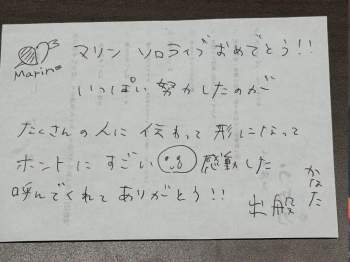 Marine マリン ソロライブ おめでとう!!
いっぱい努力したのが
たくさんの人に伝わって形になって
ホントにすごい感動した
呼んでくれてありがとう!!
かなた